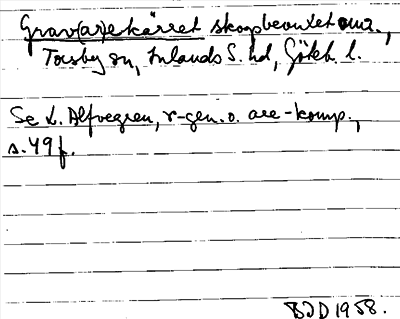 Grav(ar)ekärret skogbevuxet omr.,
Torsby sn, Inlands S. hd, Göteb. l.
Se L. Alfvegren, r-gen. o. are-komp.,
s. 49 f.
BJD 1958.